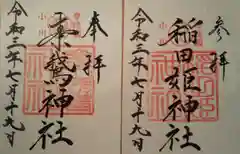 参拝
稲田姫神社
令和三年七月十九日
奉拝
素鵞神社
小川
令和三年七月十九日